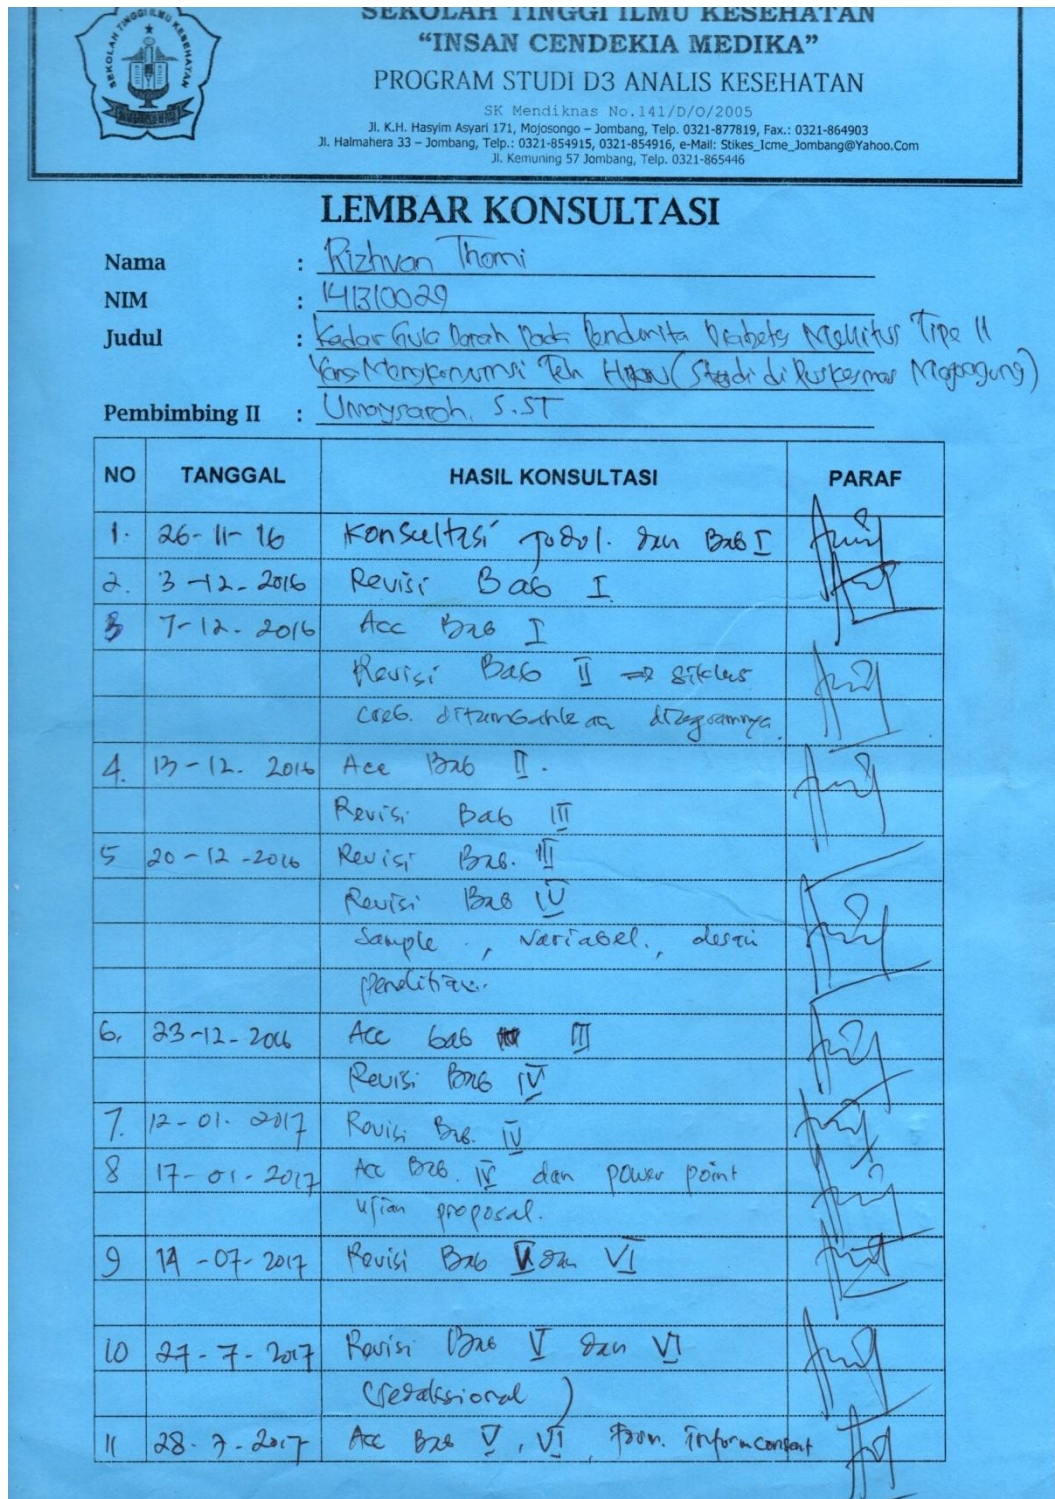 SEKOLAH TINGGI ILMU KESEHATAN
SEKOLAH TINGGI ILMU KESEHATAN
“INSAN CENDEKIA MEDIKA”
PROGRAM STUDI D3 ANALIS KESEHATAN
SK Mendiknas No.141/D/O/2005
Jl. K.H. Hasyim Asyari 171, Mojosongo – Jombang, Telp. 0321-877819, Fax.: 0321-864903
Jl. Halmahera 33 – Jombang, Telp.: 0321-854915, 0321-854916, e-Mail: Stikes_Icme_Jombang@Yahoo.Com
Jl. Kemuning 57 Jombang, Telp. 0321-865446
LEMBAR KONSULTASI
Nama : Rizhvan Thomi
NIM : 141310029
Judul : Kadar Gula Darah Pada Penderita Diabetes Mellitus Tipe II
Yang Mengkonsumsi Teh Hijau (Studi di Puskesmas Mojoagung)
Pembimbing II : Umaysaroh, S.ST
NO TANGGAL HASIL KONSULTASI PARAF
1. 26-11-16 Konsultasi Judul. dan Bab I
2. 3-12-2016 Revisi Bab I
3 7-12-2016 Acc Bab I
Revisi Bab II ⇒ siklus
creb. ditambahkan diagramnya.
4. 13-12-2016 Acc Bab II.
Revisi Bab III
5 20-12-2016 Revisi Bab. III
Revisi Bab IV
Sample, Variabel, desain
penelitian.
6. 23-12-2016 Acc bab III
Revisi Bab IV
7. 12-01-2017 Revisi Bab. IV
8 17-01-2017 Acc Bab. IV dan power point
ujian proposal.
9 14-07-2017 Revisi Bab V dan VI
10 27-7-2017 Revisi Bab V dan VI
(redaksional)
11 28-7-2017 Acc Bab V, VI, inform consent